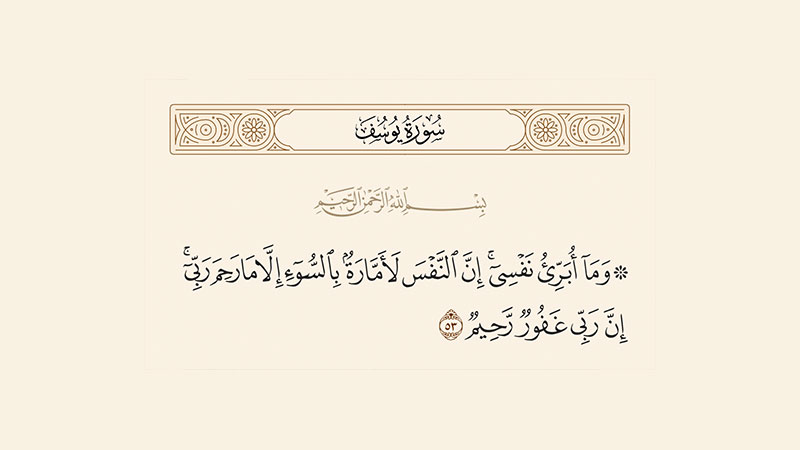 سُورَةُ يُوسُفَ
بِسْمِ ٱللَّهِ ٱلرَّحْمَٰنِ ٱلرَّحِيمِ
۞ وَمَآ أُبَرِّئُ نَفْسِىٓ ۚ إِنَّ ٱلنَّفْسَ لَأَمَّارَةٌۢ بِٱلسُّوٓءِ إِلَّا مَا رَحِمَ رَبِّىٓ ۚ
إِنَّ رَبِّى غَفُورٌ رَّحِيمٌ ٥٣